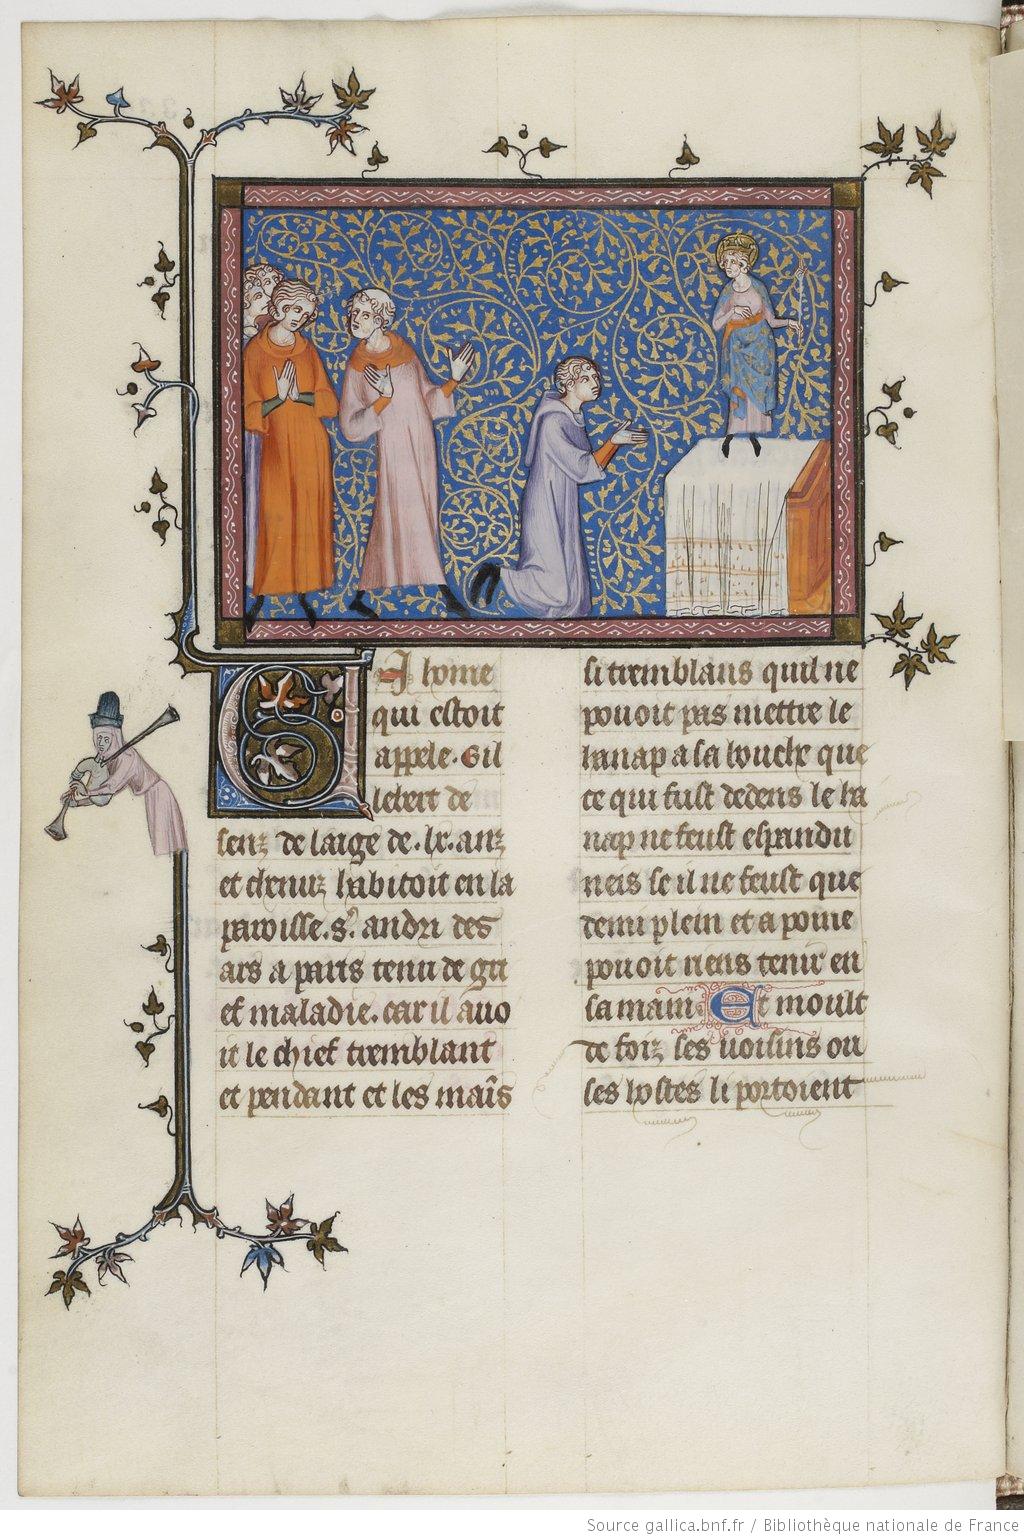 Uns home
qui estoit
appele. Gil
lebert de
senz de laige de .lx. anz
et demiz habitoit en la
parroisse. s. andri des
ars a paris tenu de gri
ef maladie. car il avo
it le chief tremblant
et pendant et les mains
si tremblans quil ne
pouoit pas mettre le
hanap a sa bouche que
ce qui fust dedens le ha
nap ne feust espandu
neis se il ne feust que
demi plein et a poine
pouoit riens tenir en
sa main. Et moult
de foiz ses uoisins ou
ses hostes li portoient
Source gallica.bnf.fr / Bibliothèque nationale de France